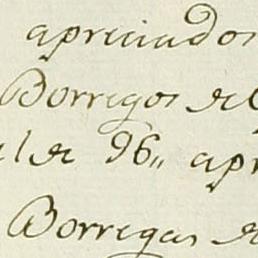 apreciados
Borregos de
el de 96,, apr
Borregas de